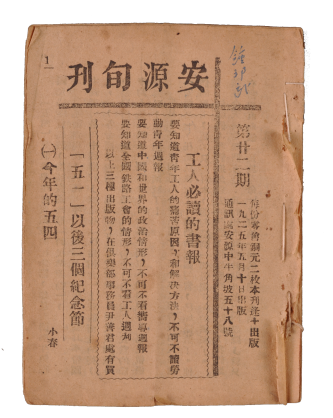 安源旬刊
1
第廿二期
每份售洋銅元二枚本刊逢十出版
一九二五年五月十日出版
通訊處安源中半角坡五十八號
工人必讀的書報
要知道青年工人的痛苦原因，和解決方法，不可不讀勞
動青年週報
要知道中國和世界的政治情形，不可不看嚮導週報
要知道全國鐵路工會的情形，不可不看工人週刊
以上三種出版物，在俱樂部
處有賣
「五一」以後三個紀念節
㈠今年的五四
小春